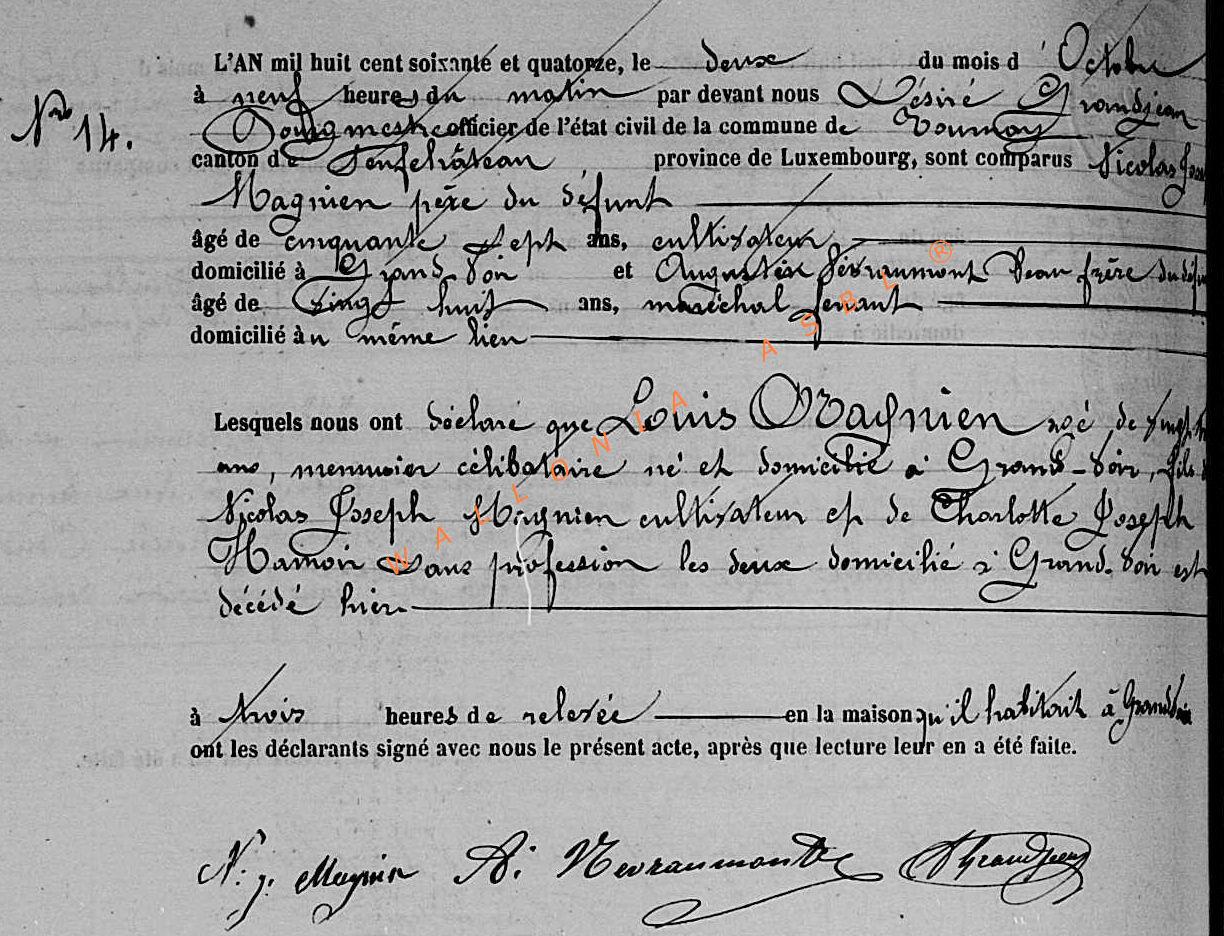 Nro 14.
L'AN mil huit cent soixante et quatorze, le deux du mois d'Octobre
à neuf heures du matin par devant nous Désiré Grandjean
Bourgmestre officier de l'état civil de la commune de Tournay
canton de Neufchâteau province de Luxembourg, sont comparus Nicolas Jose
Magnien père du défunt
âgé de cinquante sept ans, cultivateur
domicilié à Grand-Voir et Augustin Névraumont Beau frère du défu
âgé de Vingt huit ans, maréchal ferrant
domicilié au même lieu
Lesquels nous ont déclaré que Louis Magnien agé de vingt
ans, menuisier célibataire né et domicilié à Grand-Voir, fils d
Nicolas Joseph Magnien cultivateur et de Charlotte Joseph
Hamoir Sans profession les deux domicilié à Grand-Voir est
décédé hier
à trois heures de relevée en la maison qu'il habitait à Grandvoir
ont les déclarants signé avec nous le présent acte, après que lecture leur en a été faite.
N. j. Magnien A. Nevraumont DGrandjean
WALLONIA ASBL ®